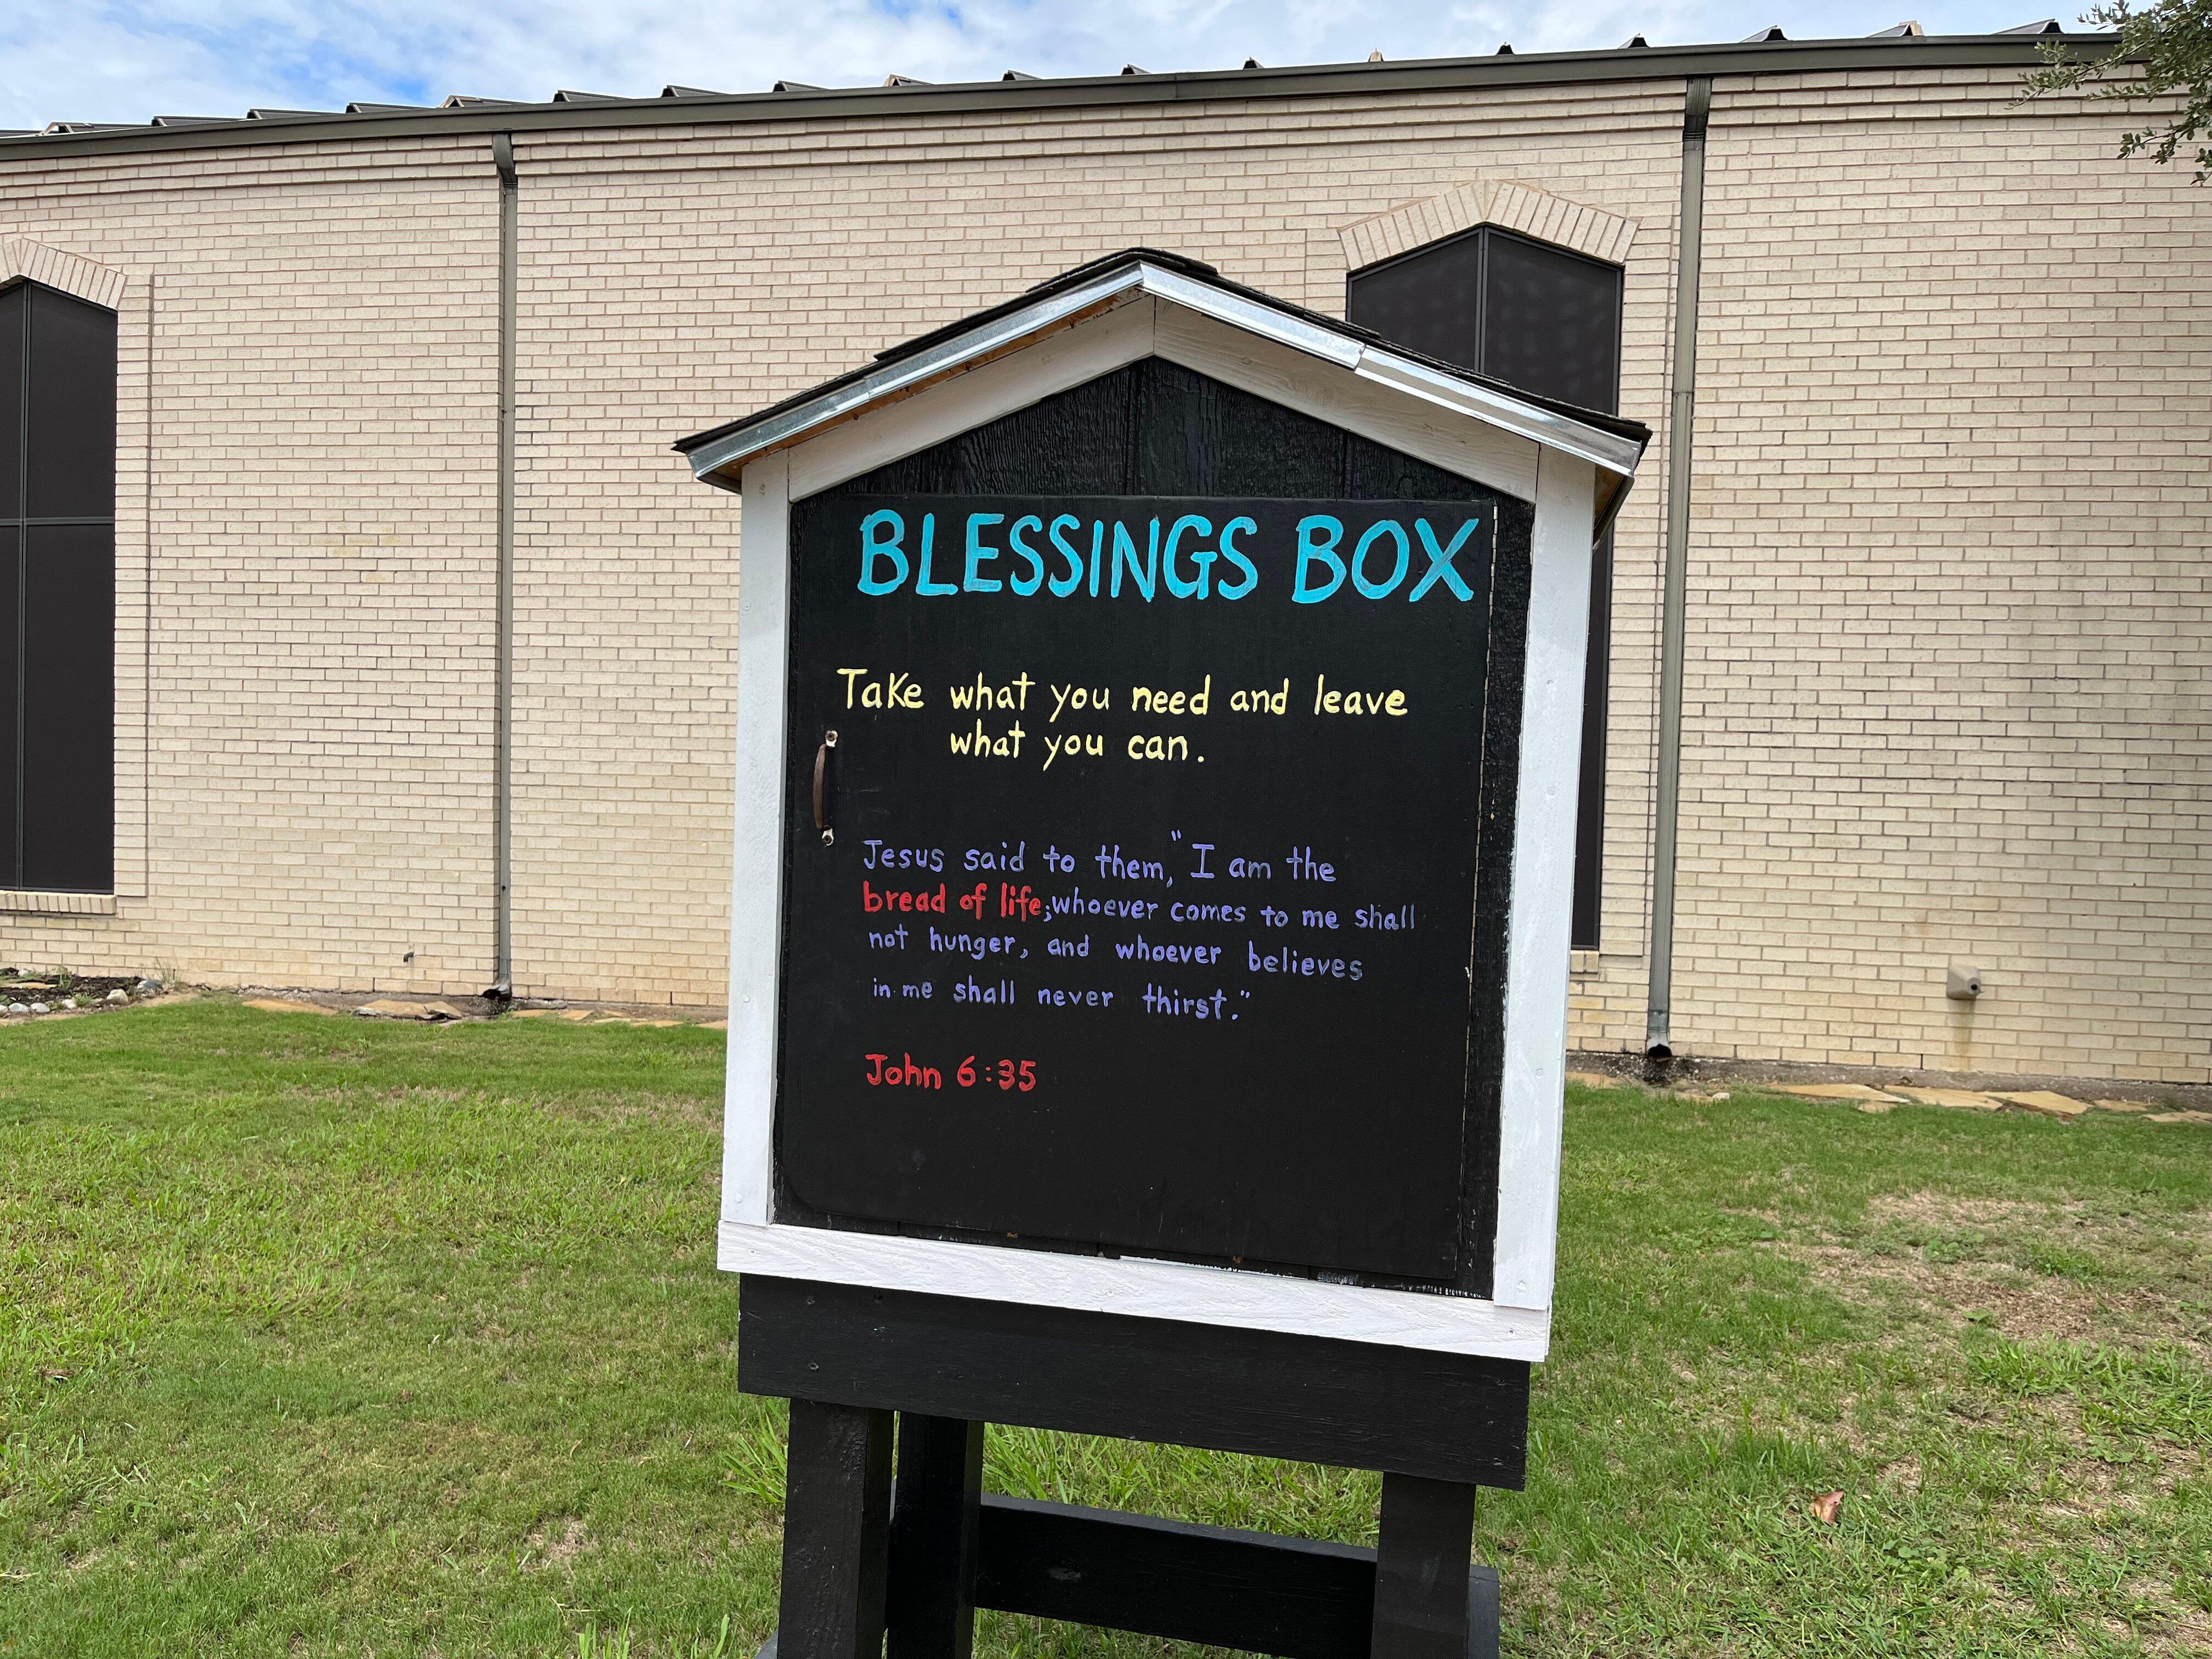 BLESSINGS BOX
Take what you need and leave
what you can.
Jesus said to them, "I am the
bread of life; whoever comes to me shall
not hunger, and whoever believes
in me shall never thirst."
John 6:35